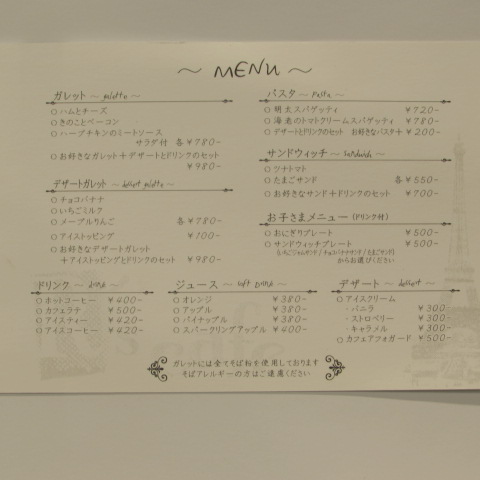 ～ MENU ～
ガレット ～ galette ～
○ ハムとチーズ
○ きのことベーコン
○ ハーブチキンのミートソース
サラダ付 各¥780-
○ お好きなガレット＋デザートとドリンクのセット
¥980-
デザートガレット ～ dessert galette ～
○ チョコバナナ
○ いちごミルク
○ メープルりんご 各¥780-
○ アイストッピング ¥100-
○ お好きなデザートガレット
＋アイストッピングとドリンクのセット ¥980-
パスタ ～ pasta ～
○ 明太スパゲッティ ¥720-
○ 海老のトマトクリームスパゲッティ ¥780-
○ デザートとドリンクのセット お好きなパスタ＋¥200-
サンドウィッチ ～ sandwich ～
○ ツナトマト
○ たまごサンド 各¥550-
○ お好きなサンド＋ドリンクのセット ¥700-
お子さまメニュー（ドリンク付）
○ おにぎりプレート ¥500-
○ サンドウィッチプレート ¥500-
（いちごジャムサンド/チョコバナナサンド/たまごサンド）
からお選びください
ドリンク ～ drink ～
○ ホットコーヒー ¥400-
○ カフェラテ ¥500-
○ アイスティー ¥420-
○ アイスコーヒー ¥420-
ジュース ～ soft drink ～
○ オレンジ ¥380-
○ アップル ¥380-
○ パイナップル ¥380-
○ スパークリングアップル ¥400-
デザート ～ dessert ～
○ アイスクリーム
・バニラ ¥300-
・ストロベリー ¥300-
・キャラメル ¥300-
○ カフェアフォガード ¥500-
ガレットには全てそば粉を使用しております
そばアレルギーの方はご遠慮ください